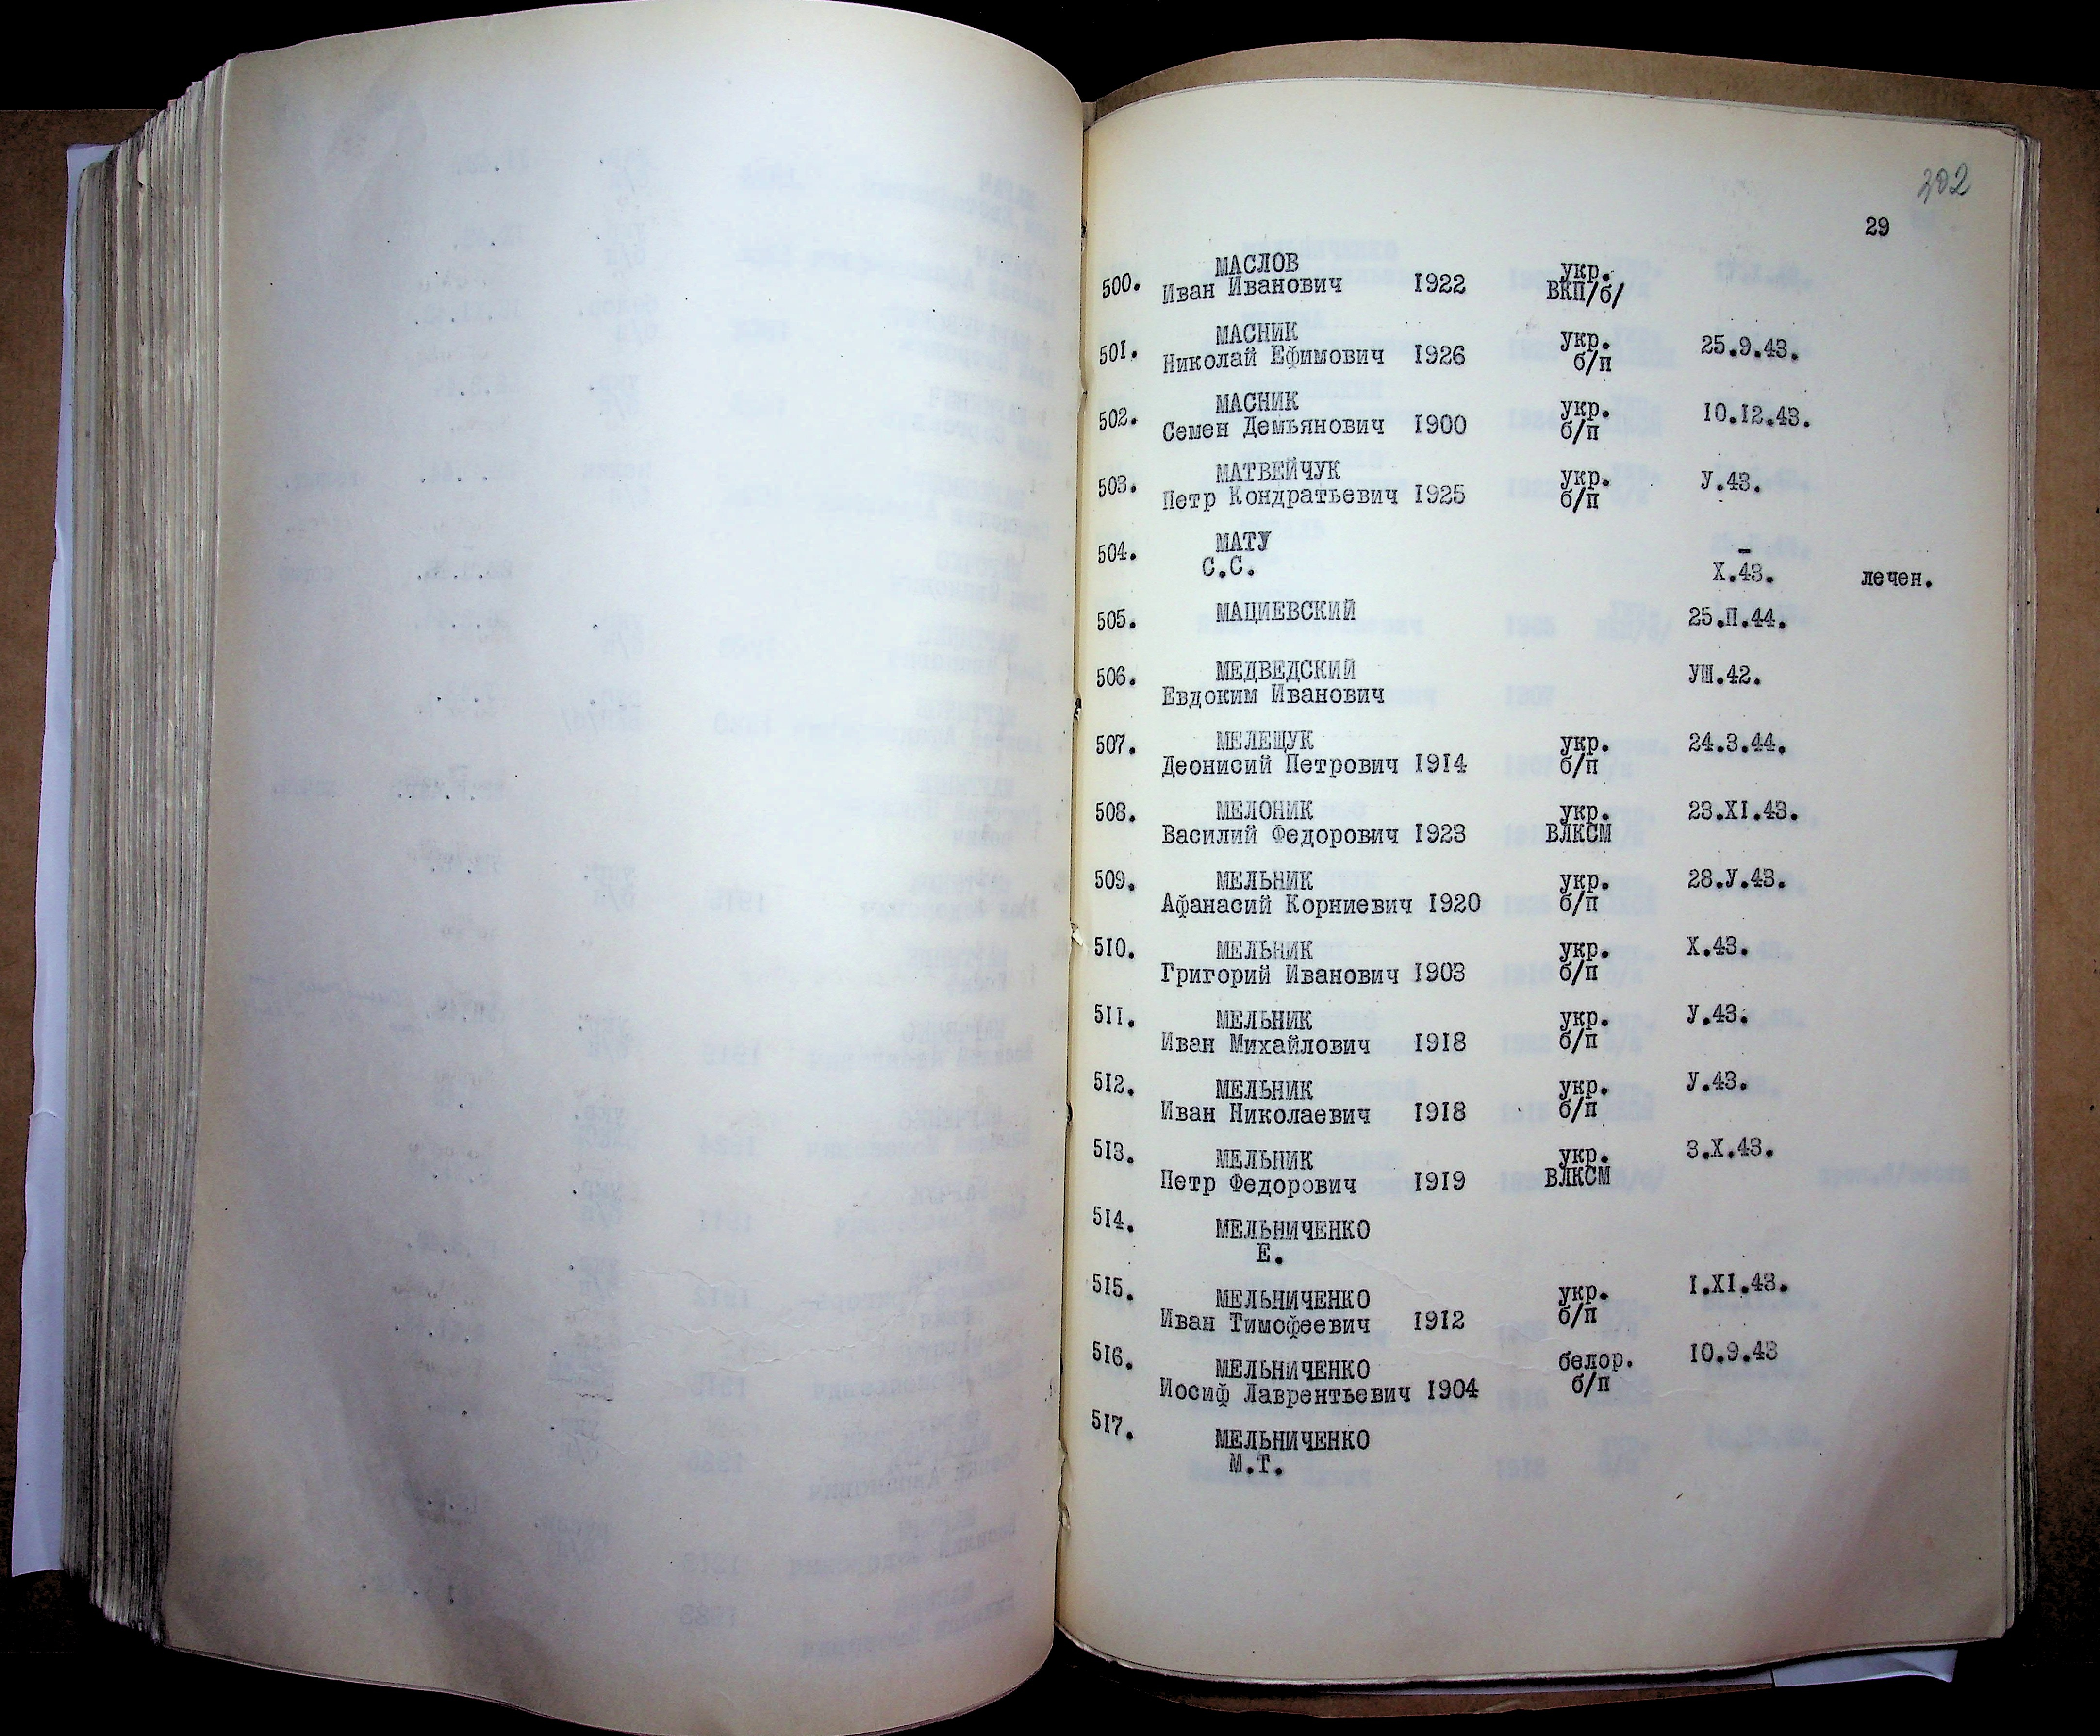 202
29
500. МАСЛОВ укр.
Иван Иванович 1922 ВКП/б/
501. МАСНИК укр. 25.9.43.
Николай Ефимович 1926 б/п
502. МАСНИК укр. 10.12.43.
Семен Демьянович 1900 б/п
503. МАТВЕЙЧУК укр. У.43.
Петр Кондратьевич 1925 б/п
504. МАТУ –
С.С. Х.43. лечен.
505. МАЦИЕВСКИЙ 25.П.44.
506. МЕДВЕДСКИЙ УШ.42.
Евдоким Иванович
507. МЕЛЕЩУК укр. 24.3.44.
Деонисий Петрович 1914 б/п
508. МЕЛОНИК укр. 23.XI.43.
Василий Федорович 1923 ВЛКСМ
509. МЕЛЬНИК укр. 28.У.43.
Афанасий Корниевич 1920 б/п
510. МЕЛЬНИК укр. Х.43.
Григорий Иванович 1903 б/п
511. МЕЛЬНИК укр. У.43.
Иван Михайлович 1918 б/п
512. МЕЛЬНИК укр. У.43.
Иван Николаевич 1918 б/п
513. МЕЛЬНИК укр. 3.Х.43.
Петр Федорович 1919 ВЛКСМ
514. МЕЛЬНИЧЕНКО
Е.
515. МЕЛЬНИЧЕНКО укр. I.XI.43.
Иван Тимофеевич 1912 б/п
516. МЕЛЬНИЧЕНКО белор. 10.9.43
Иосиф Лаврентьевич 1904 б/п
517. МЕЛЬНИЧЕНКО
М.Т.